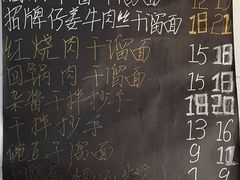 招牌仔姜牛肉丝干溜面 18 21
红烧肉干溜面 15 18
回锅肉干溜面 15 18
杂酱干拌抄手 18 20
干拌抄手 13 16
豌豆干溜面 9 11
7 9